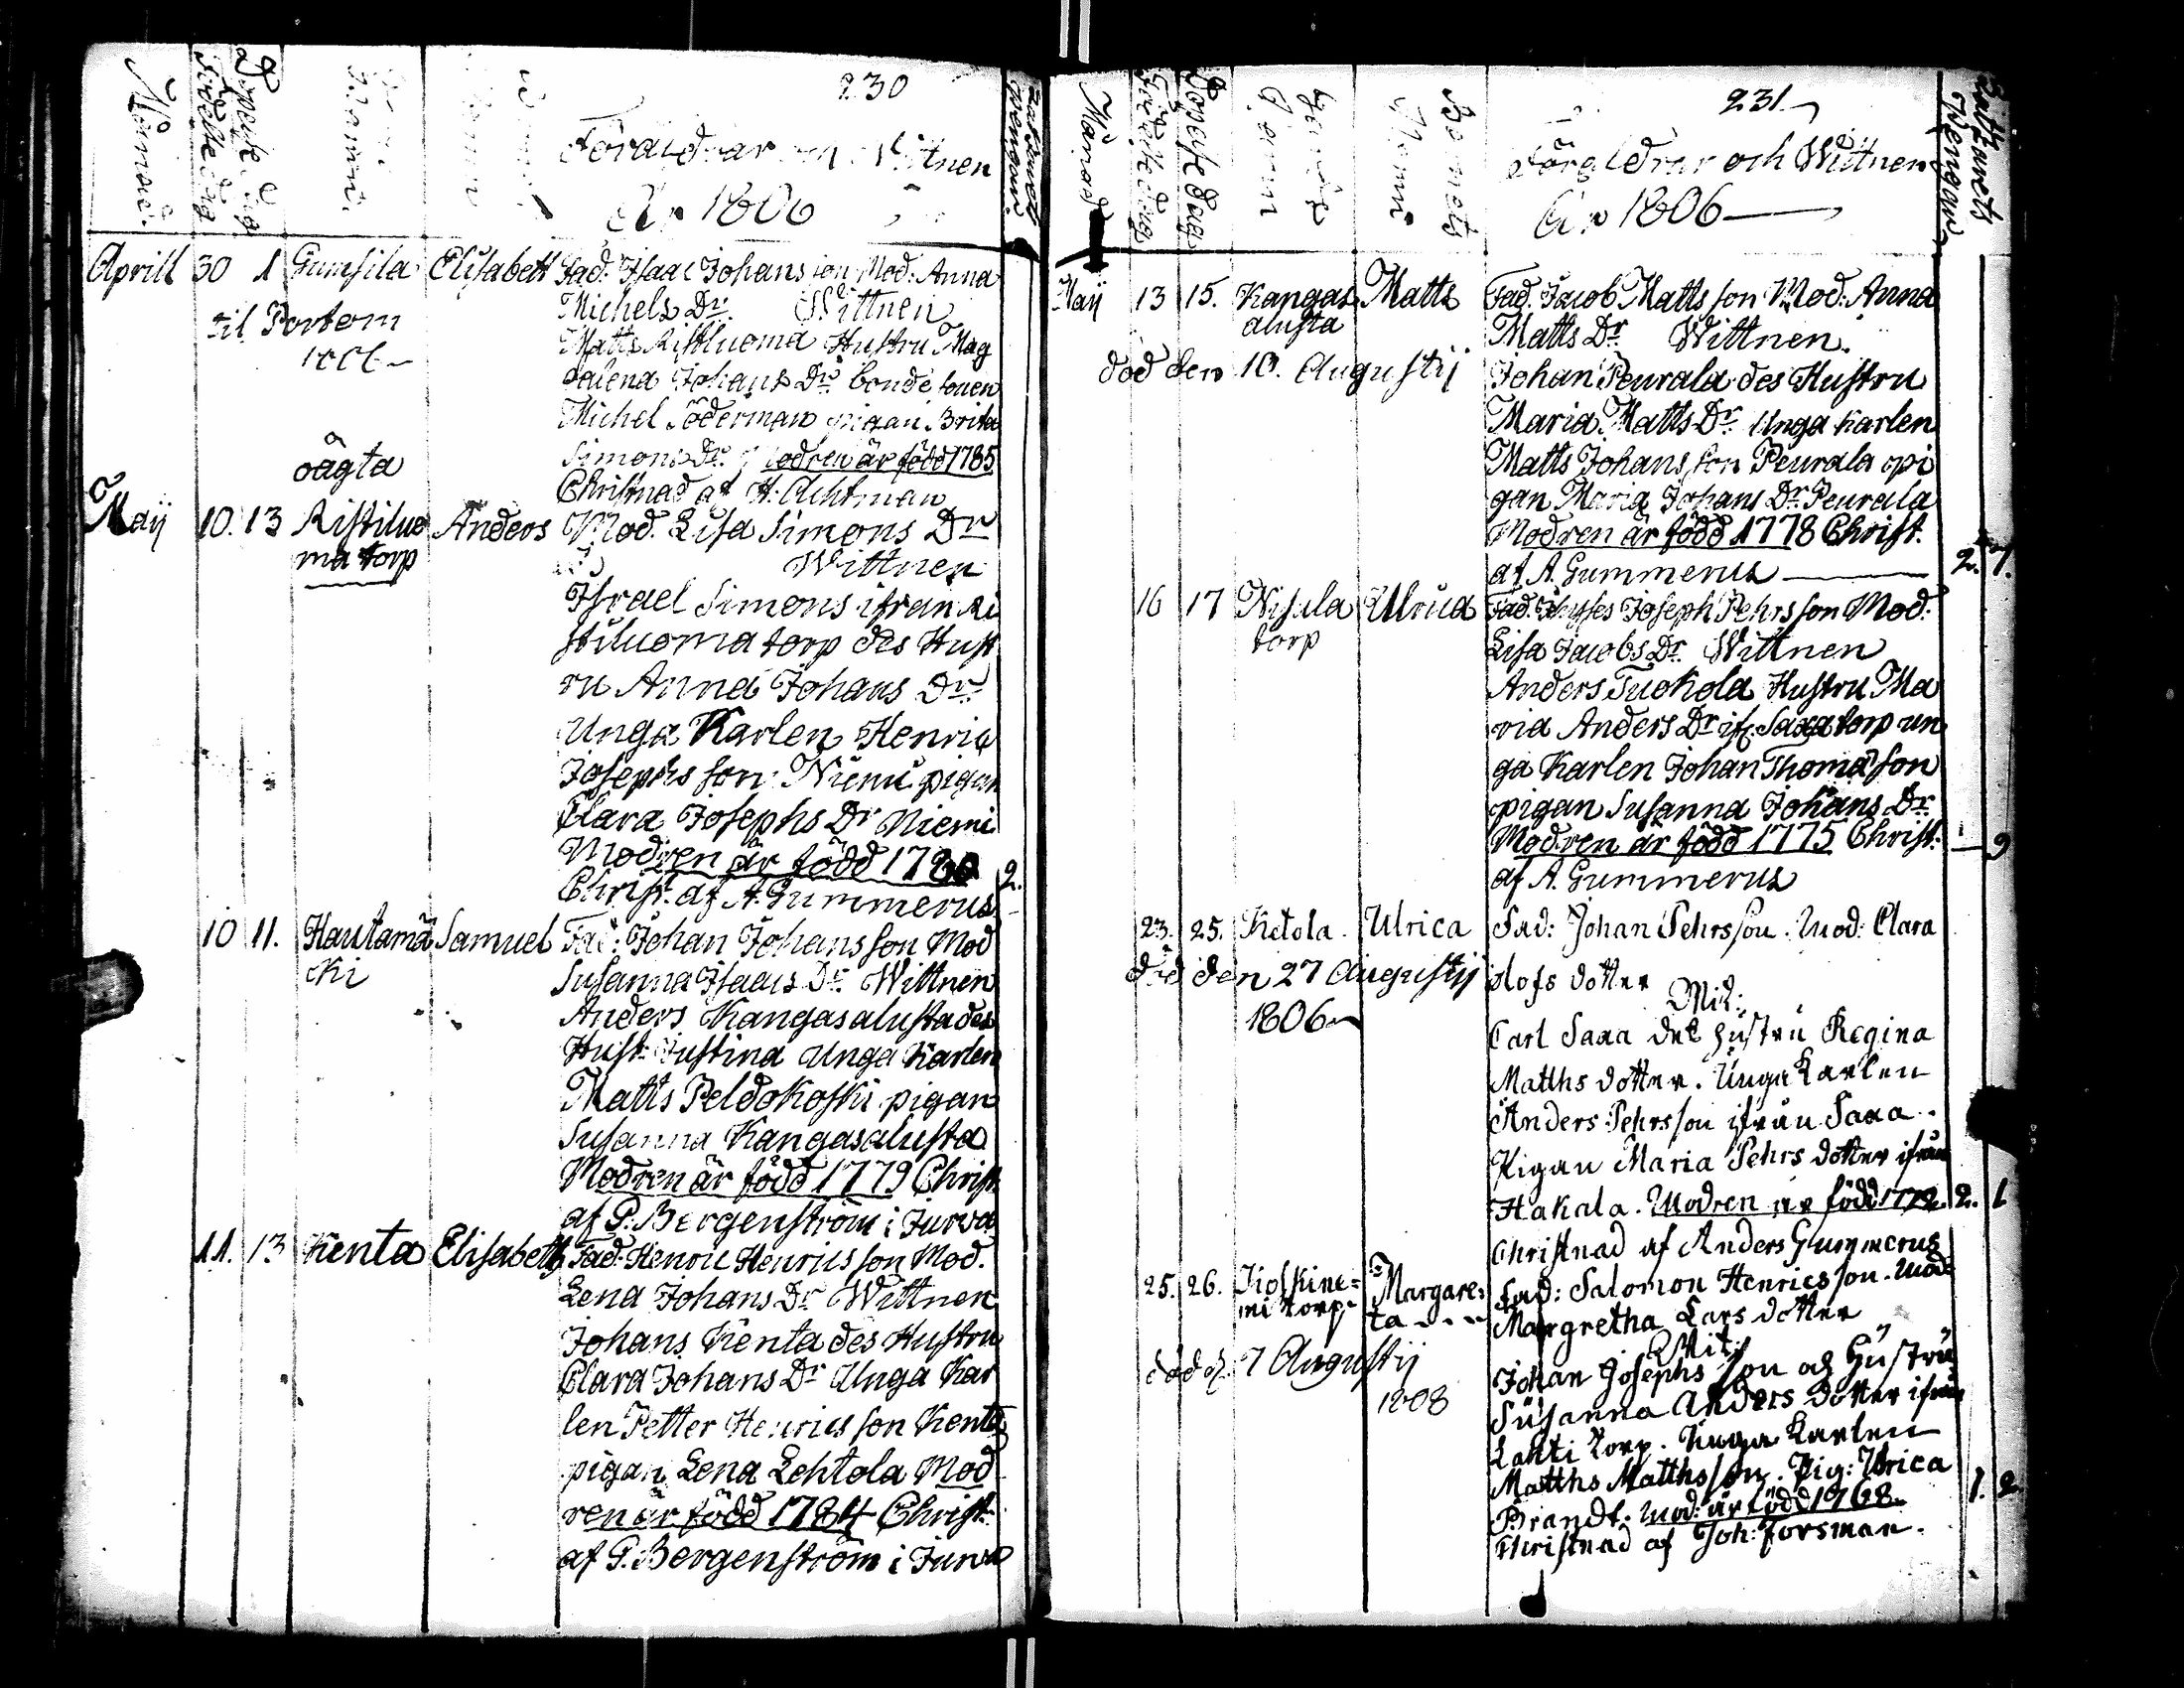 230
Månad.
Födelse dag
Döpelse dag
Föräldrar och Wittnen
År 1806
Aprill 30 1 Gumsila Elisabett Fad: Isaac Johansson Mod: Anna
Michels Dr. Wittnen
til Portom
Matts Ristiluoma Hustru Mag
dalena Johans Dr. bonde sonen
Michel Söderman pigan Brita
Simons Dr. Modren är född 1785
Christnad af H: Achtman
oägta
Maij 10. 13 Ristiluo Anders Mod. Lisa Simons Dr
ma torp
Wittnen
Israel Simons ifrån Ri
stiluoma torp des Hust
ru Anna Johans Dr.
Unga Karlen Henric
Josephs son Niemi pigan
Clara Josephs Dr Niemi
Modren är född 1780
Christ. af A. Gummerus 2.
10 11. Hautamä Samuel Fad: Johan Johansson Mod
ki
Susanna Isaacs Dr. Wittnen
Anders Kangasalusta des
Hust: Justina Unga Karlen
Matts Peldokoski pigan
Susanna Kangasalusta
Modren är född 1779 Christ
af P. Bergenström i Jurva
11. 13 Kenta Elisabeth Fad: Henric Henricsson Mod.
Lena Johans Dr Wittnen
Johans Kenta des Hustru
Clara Johans Dr Unga Kar
len Petter Henricsson Kenta
pigan Lena Lehtola Mod
ren är född 1784 Christ.
af P. Bergenström i Jurva
231.
Månad
Födelse dag
Döpelse dag
Barnets
Namn
Föräldrar och Wittnen
År 1806
Maij 13 15. Kangas Matts Fad. Jacob Mattsson Mod: Anna
alusta
Matts Dr. Wittnen.
död den 10. Augustij
Johan Peurala des Hustru
Maria Matts Dr. Unga karlen
Matts Johansson Peurala pi
gan Maria Johans Dr. Peurala
Modren är född 1778 Christ.
af A. Gummerus 2. 7.
16 17 Nisula Ulrica Fad. Joseph Pehrsson Mod:
torp
Lisa Jacobs Dr. Wittnen
Anders Tuokola Hustru Ma
ria Anders Dr if. Saxa torp un
ga Karlen Johan Thomasson
pigan Susanna Johans Dr.
Modren är född 1775 Christ. 9
af A. Gummerus
23. 25. Ketola. Ulrica Fad: Johan Pehrsson. Mod: Clara
Olofs dotter
död den 27 Augustij
1806
Wit:
Carl Saxa des hustru Regina
Matths dotter. Unga Karlen
Anders Pehrsson ifrån Saxa.
Pigan Maria Pehrs dotter ifrån
Hakala. Modren är född 1772. 2. 1
Christnad af Anders Gummerus
25. 26. Kiskine= Margare= Fad: Salomon Henricsson. Mod:
mi torp. ta
Margretha Lars dotter
Wit:
död d. 7 Augustij
1808
Johan Josephs son och Hustru
Susanna Anders dotter ifrån
Lahti torp. Unga Karlen
Matths Matthsson. Pig: Ulrica
Brandt. Mod: är född 1768. 1. 2
Christnad af Joh: Forsman.